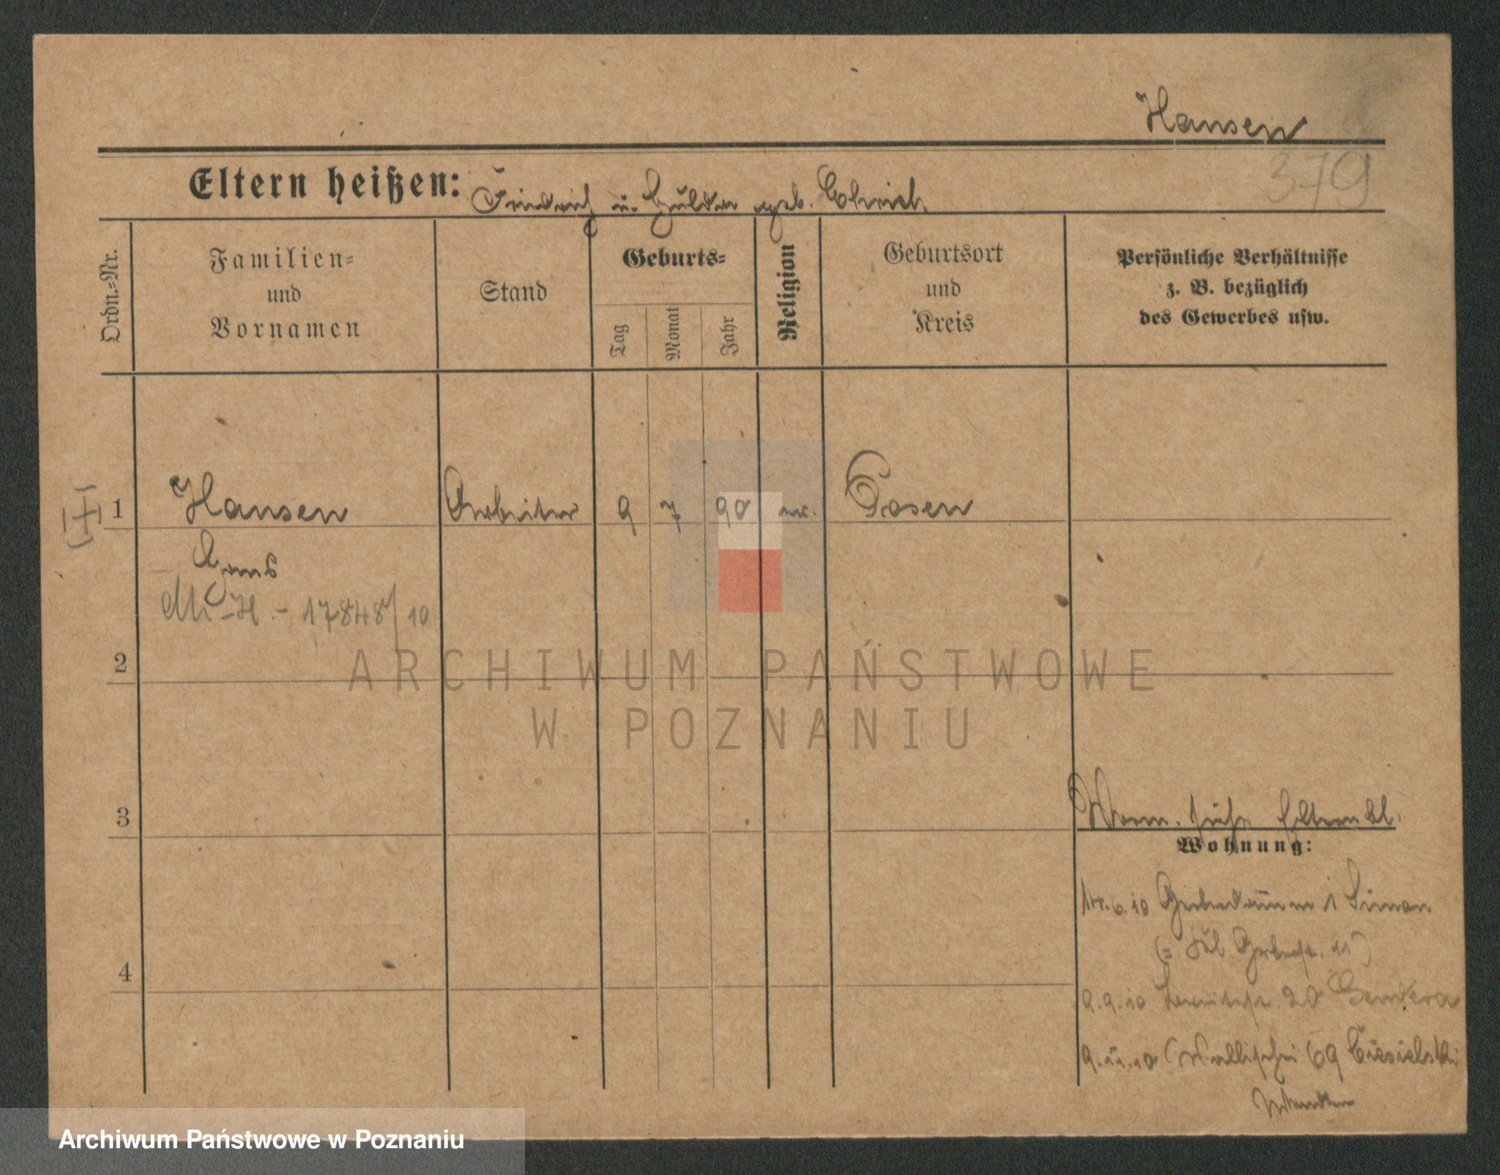 Hansen
379
Eltern heißen: Friedrich u. Hulda geb.
Ordn.-Nr.
Familien-
und
Vornamen
Stand
Geburts-
Tag
Monat
Jahr
Religion
Geburtsort
und
Kreis
Persönliche Verhältnisse
z. B. bezüglich
des Gewerbes usw.
1 Hansen Arbeiter 9 7 90 ev. Posen
Hans
17848/10
2
ARCHIWUM PAŃSTWOWE
W POZNANIU
3
Wohnung:
14.6.10 Gerberdamm 1 Simon
4
9.9.10 20
9.11.10 Wallischei 69 Ciesielski
Archiwum Państwowe w Poznaniu